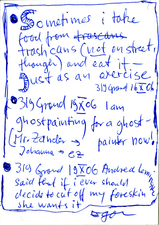 Sometimes i take
food from
trashcans (not on street,
though) and eat it –
Just as an exercise.
319 Grand 18 X 06
319 Grand 18 X 06 I am
ghostpainting for a ghost-
painter now!
(Mr. Zander →
Johanna ←
319 Grand 18 X 06 Andrea
said that if i ever should
decide to cut off my foreskin,
she wants it